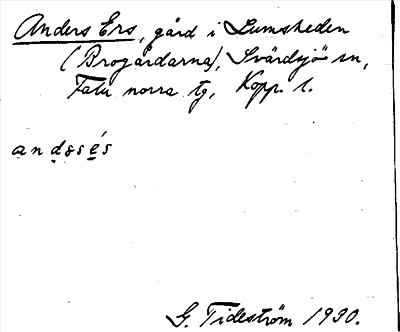 Anders Ers, gård i Lumsheden
(Brogårdarna), Svärdsjö sn,
Falu norra tg, Kopp. l.
andəsés
G. Tideström 1930.